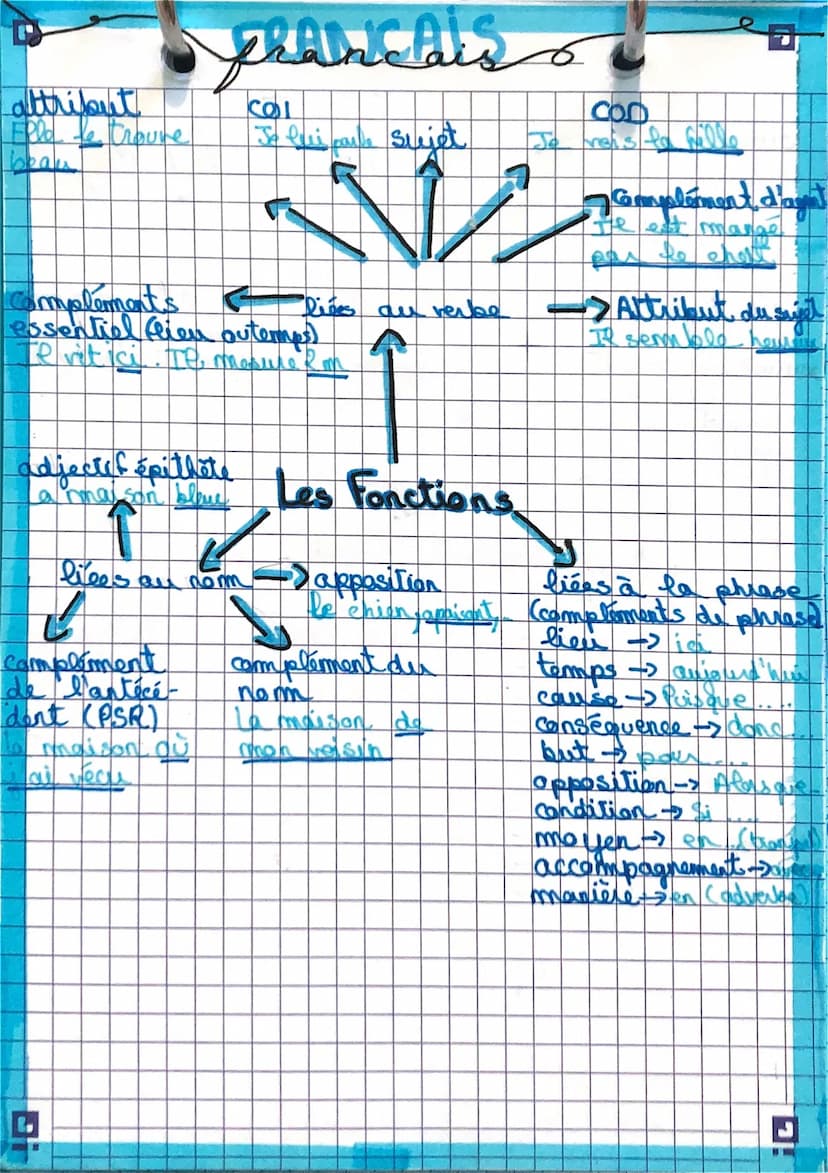 FRANCAIS
francais
attribut
Elle le trouve
beau
COI
Je lui parle
sujet
COD
Je vois la fille
Complément d'agent
Il est mangé
par le
compléments
essentiel (lieu ou temps)
Il vit ici. Il mesure 2m
liées au verbe
Attribut du sujet
Il semble heureux
adjectif épithète
La maison bleue
Les Fonctions
liées au nom
apposition
le chien,
complément
de l'antécé-
dent (PSR)
la maison où
j'ai vécu
complément du
nom
La maison de
mon voisin
liées à la phrase
(compléments de phrase)
lieu -> ici
temps -> aujourd'hui
cause -> Puisque....
conséquence -> donc...
but -> pour...
opposition -> Alorsque
condition -> Si ....
moyen -> en
accompagnement -> avec
manière -> en (adverbe)